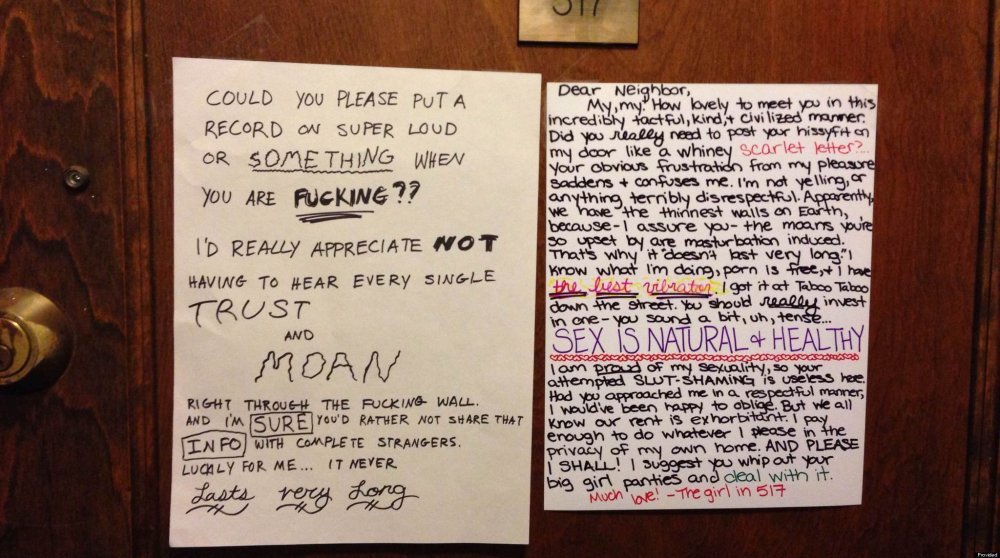 517
COULD YOU PLEASE PUT A
RECORD ON SUPER LOUD
OR SOMETHING WHEN
YOU ARE FUCKING??
I'D REALLY APPRECIATE NOT
HAVING TO HEAR EVERY SINGLE
TRUST
AND
MOAN
RIGHT THROUGH THE FUCKING WALL.
AND I'M SURE YOU'D RATHER NOT SHARE THAT
INFO WITH COMPLETE STRANGERS.
LUCKLY FOR ME... IT NEVER
Lasts very Long
Dear Neighbor,
My, my! How lovely to meet you in this
incredibly tactful, kind, + civilized manner.
Did you really need to post your hissyfit on
my door like a whiney scarlet letter?...
Your obvious frustration from my pleasure
saddens + confuses me. I'm not yelling, or
anything terribly disrespectful. Apparently,
we have the thinnest walls on Earth,
because - I assure you - the moans you're
so upset by are masturbation induced.
That's why it "doesn't last very long." I
know what I'm doing, porn is free, + I have
the best vibrator. I got it at Taboo Taboo
down the street. You should really invest
in one - you sound a bit, uh, tense...
SEX IS NATURAL + HEALTHY
I am proud of my sexuality, so your
attempted SLUT-SHAMING is useless here.
Had you approached me in a respectful manner,
I would've been happy to oblige. But we all
know our rent is exhorbitant. I pay
enough to do whatever I please in the
privacy of my own home. AND PLEASE
I SHALL! I suggest you whip out your
big girl panties and deal with it.
Much love! - The girl in 517
Provided